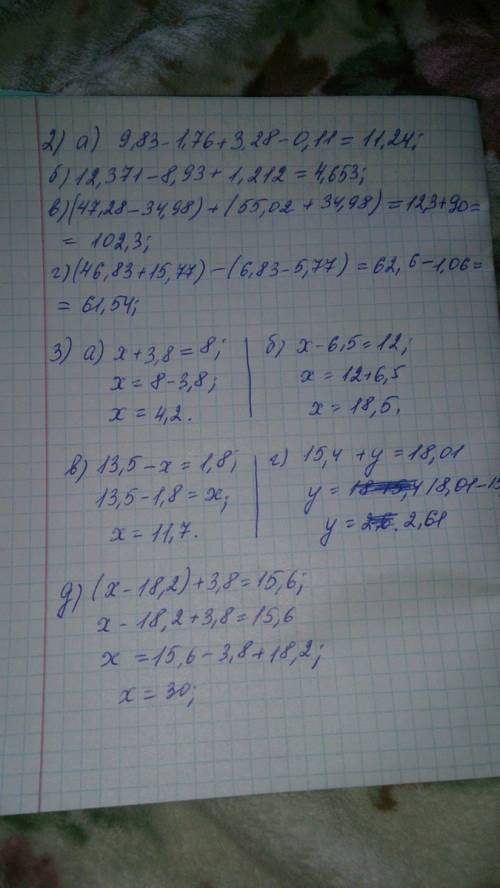 2) а) 9,83-1,76+3,28-0,11=11,24;
б) 12,371-8,93+1,212=4,653;
в) (47,28-34,98)+(55,02+34,98)=12,3+90=
=102,3;
г) (46,83+15,77)-(6,83-5,77)=62,6-1,06=
=61,54;
3) а) x+3,8=8;
x=8-3,8;
x=4,2.
б) x-6,5=12;
x=12+6,5
x=18,5.
в) 13,5-x=1,8;
13,5-1,8=x;
x=11,7.
г) 15,4+y=18,01
y= 18,01-15
y= 2,61
д) (x-18,2)+3,8=15,6;
x-18,2+3,8=15,6
x=15,6-3,8+18,2;
x=30;